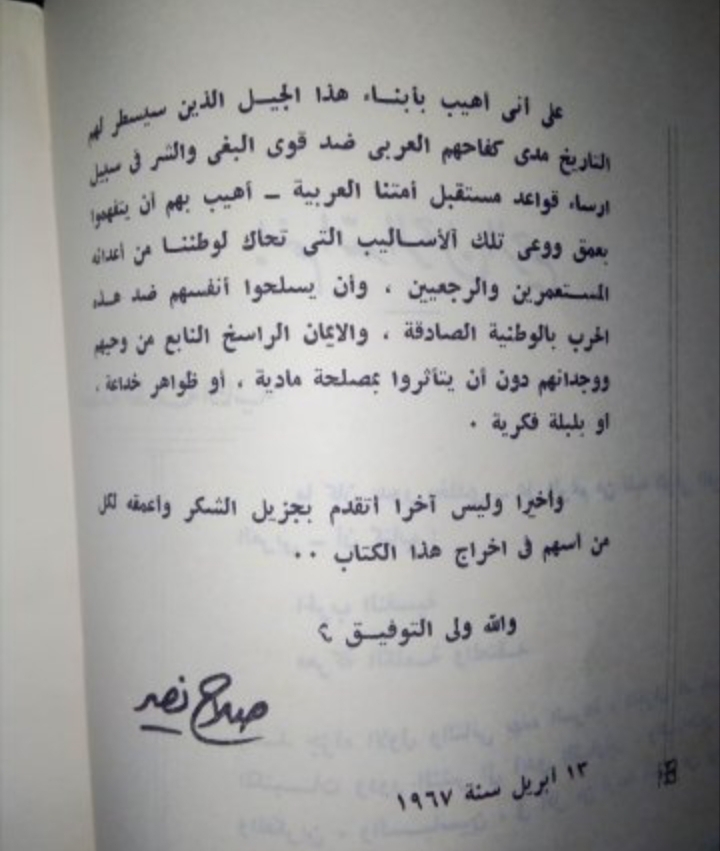 على أنى أهيب بأبنـاء هذا الجيـل الذين سيسطر لهم
التاريخ مدى كفاحهم العربى ضد قوى البغى والشر فى سبيل
ارساء قواعد مستقبل أمتنا العربية ــ أهيب بهم أن يتفهموا
بعمق ووعى تلك الأسـاليب التى تحاك لوطننـا من أعدائه
المستعمرين والرجعيين ، وأن يسلحوا أنفسهم ضد هـذه
الحرب بالوطنية الصادقة ، والايمان الراسخ النابع من وحيهم
ووجدانهم دون أن يتأثروا بمصلحة مادية ، أو ظواهر خداعة ،
او بلبلة فكرية ٠
وأخيرا وليس آخرا أتقدم بجزيل الشكر وأعمقه لكل
من أسهم فى اخراج هذا الكتاب ٠٠
والله ولى التوفيـق ؟
صلاح نصر
١٣ ابريل سنة ١٩٦٧